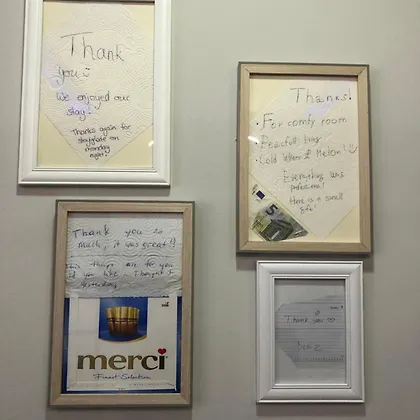 Thank
you
We enjoyed our
stay.
Thanks again for
on
monday
night.
Thanks!
• For comfy room
• Peacfull
• Cold Watter & Melon!
Everything was
professional!
Here is a small
gift!
5
Thank you so
much, it was great!!
things are for you
you like I bought
yesterday
merci
Finest Selection
Thank you so